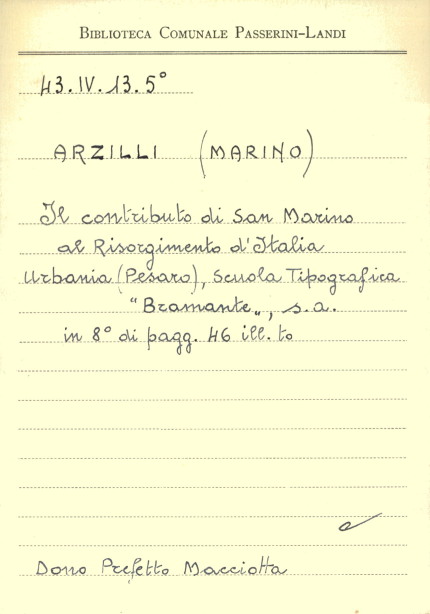 BIBLIOTECA COMUNALE PASSERINI-LANDI
43.IV.13.5°
ARZILLI (MARINO)
Il contributo di San Marino
al Risorgimento d'Italia
Urbania (Pesaro), Scuola Tipografica
"Bramante„, s.a.
in 8° di pagg. 46 ill.to
Dono Prefetto Macciotta